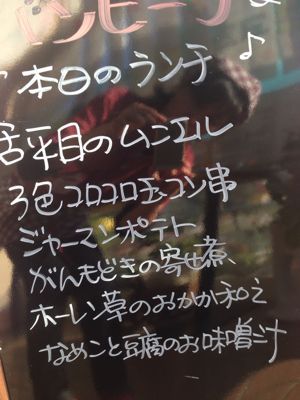 ♪
本日のランチ
舌平目のムニエル
3色コロコロ玉コン串
ジャーマンポテト
がんもどきの寄せ煮、
ホーレン草のおかか和え
なめこと豆腐のお味噌汁